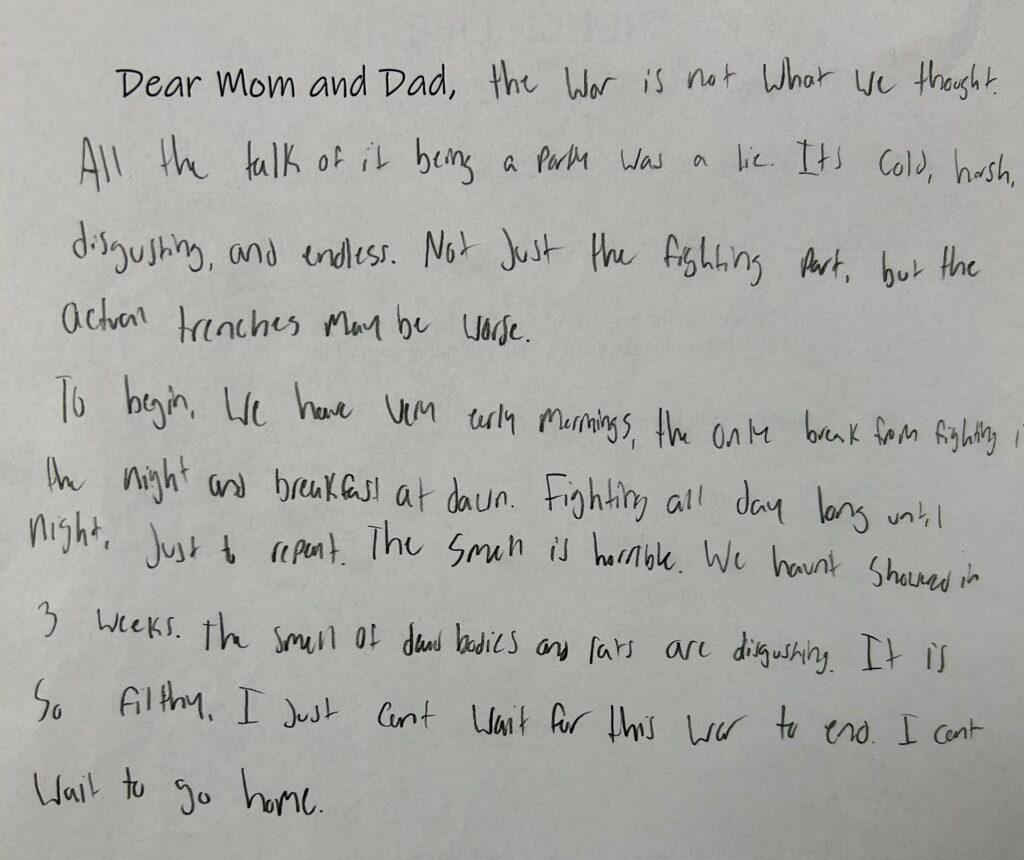 Dear Mom and Dad, the War is not What We thought.
All the talk of it being a Party was a lie. Its Cold, harsh,
disgusting, and endless. Not Just the fighting Part, but the
actual trenches May be worse.
To begin, We have very early mornings, the only break from fighting i
the night and breakfast at dawn. Fighting all day long until
night, Just to repeat. The Smell is horrible. We havnt Showered in
3 weeks. the smell of dead bodies and rats are disgusting. It is
So filthy. I Just Cant Wait for this War to end. I cant
Wait to go home.